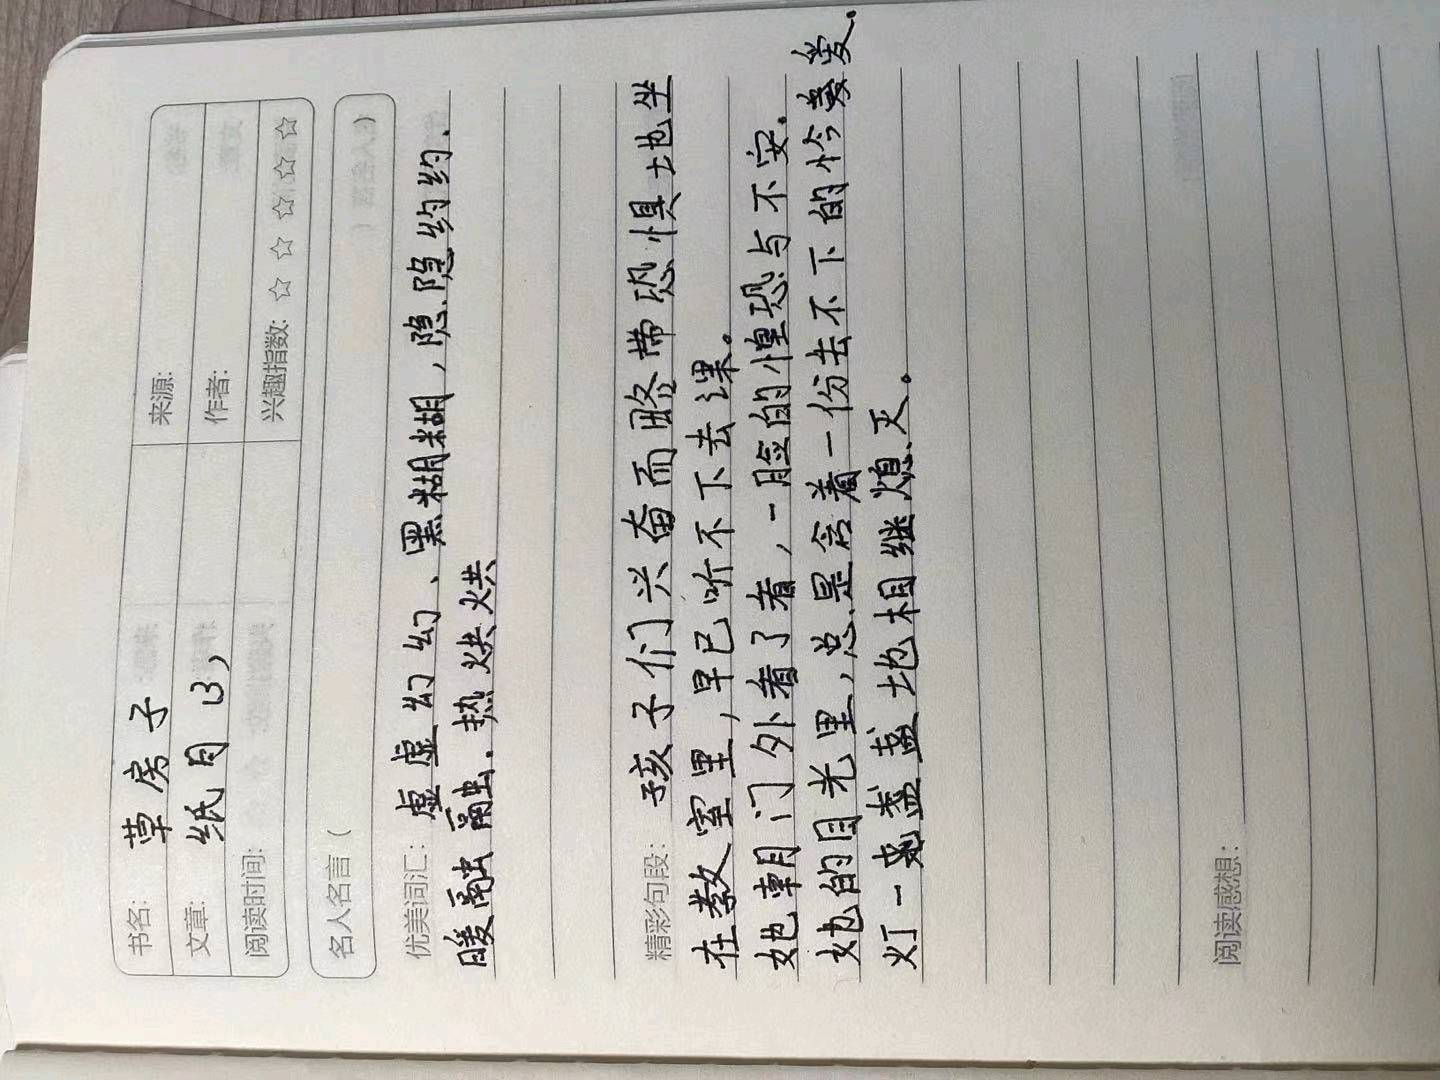 书名: 草房子
来源:
文章: 纸月(3)
作者:
阅读时间:
兴趣指数: ☆ ☆ ☆ ☆ ☆
名人名言 (
)
优美词汇: 虚虚幻幻、黑糊糊，隐隐约约.
暖融融. 热烘烘
精彩句段: 孩子们兴奋而略带恐惧地坐
在教室里，早已听不下去课。
她朝门外看了看，一脸的惶恐与不安.
她的目光里，总是含着一份去不下的怜爱.
灯一盏盏地相继熄灭。
阅读感想: